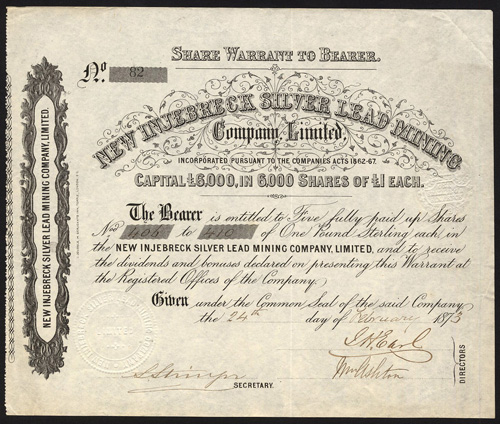 SHARE WARRANT TO BEARER.
No. 82
NEW INJEBRECK SILVER LEAD MINING
Company, Limited.
INCORPORATED PURSUANT TO THE COMPANIES ACTS 1862-67.
CAPITAL £6,000, IN 6,000 SHARES OF £1 EACH.
The Bearer is entitled to Five fully paid up Shares
Nos 406 to 410 of One Pound Sterling each, in
the NEW INJEBRECK SILVER LEAD MINING COMPANY, LIMITED, and to receive
the dividends and bonuses declared on presenting this Warrant at
the Registered Offices of the Company.
Given under the Common Seal of the said Company
the 24th day of February 1873
Wm Ashton
SECRETARY.
DIRECTORS
NEW INJEBRECK SILVER LEAD MINING COMPANY, LIMITED.